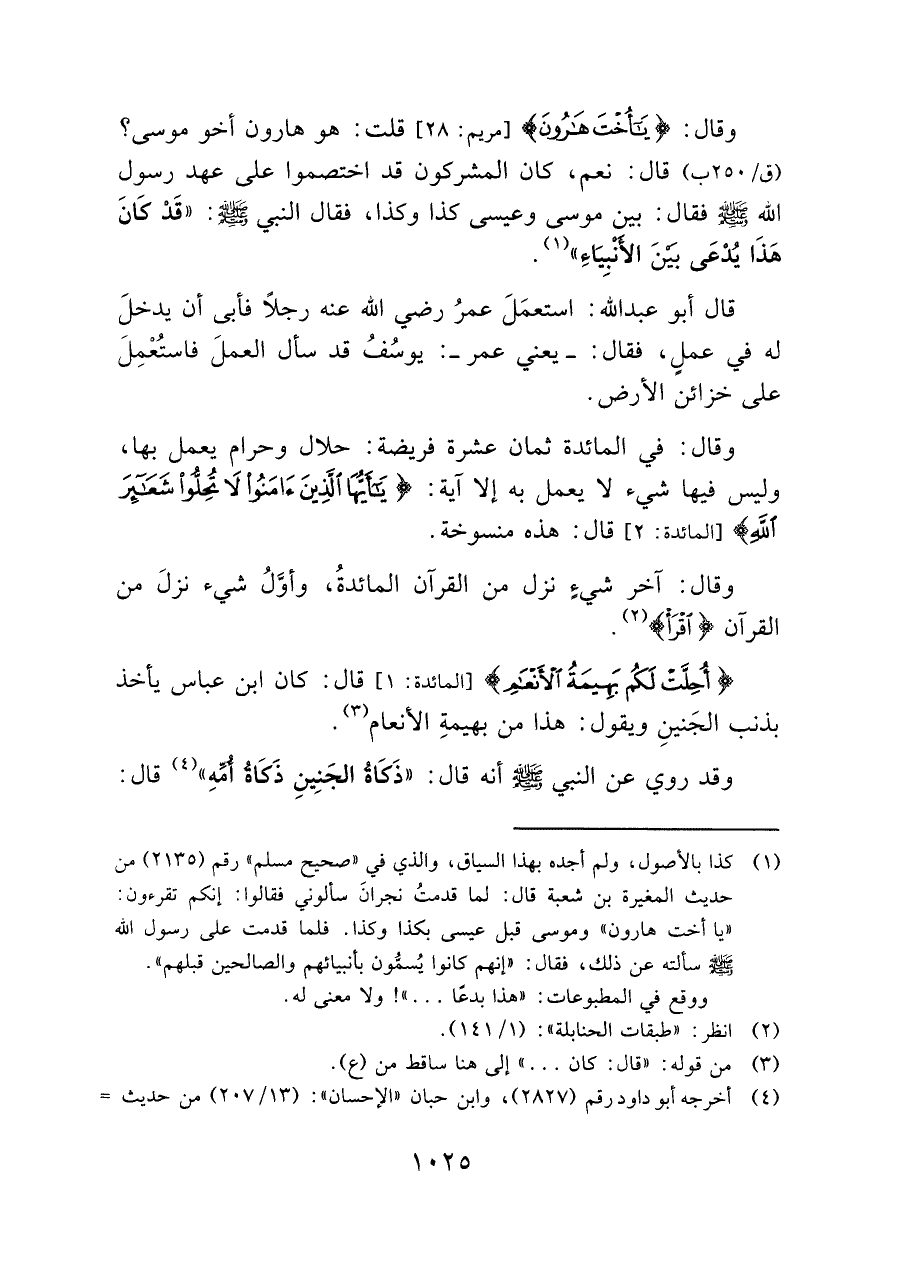 وقال: ﴿يَٰٓأُخْتَ هَٰرُونَ﴾ [مريم: ٢٨] قلت: هو هارون أخو موسى؟
(ق/٢٥٠ب) قال: نعم، كان المشركون قد اختصموا على عهد رسول
الله ﷺ فقال: بين موسى وعيسى كذا وكذا، فقال النبي ﷺ: «قَدْ كَانَ
هَذَا يُدْعَى بَيْنَ الأَنْبِيَاءِ»(١).
قال أبو عبدالله: استعمَلَ عمرُ رضي الله عنه رجلاً فأبى أن يدخلَ
له في عملٍ، فقال: ـ يعني عمر ـ: يوسُفُ قد سأل العملَ فاستُعْمِلَ
على خزائن الأرض.
وقال: في المائدة ثمان عشرة فريضة: حلال وحرام يعمل بها،
وليس فيها شيء لا يعمل به إلا آية: ﴿يَٰٓأَيُّهَا ٱلَّذِينَ ءَامَنُوا۟ لَا تُحِلُّوا۟ شَعَٰٓئِرَ
ٱللَّهِ﴾ [المائدة: ٢] قال: هذه منسوخة.
وقال: آخر شيءٍ نزل من القرآن المائدةُ، وأوَّلُ شيء نزلَ من
القرآن ﴿ٱقْرَأْ﴾(٢).
﴿أُحِلَّتْ لَكُم بَهِيمَةُ ٱلْأَنْعَٰمِ﴾ [المائدة: ١] قال: كان ابن عباس يأخذ
بذنب الجَنينِ ويقول: هذا من بهيمةِ الأنعام(٣).
وقد روي عن النبي ﷺ أنه قال: «ذَكَاةُ الجَنِينِ ذَكَاةُ أُمِّهِ»(٤) قال:
(١) كذا بالأصول، ولم أجده بهذا السياق، والذي في «صحيح مسلم» رقم (٢١٣٥) من
حديث المغيرة بن شعبة قال: لما قدمتُ نجرانَ سألوني فقالوا: إنكم تقرءون:
«يا أخت هارون» وموسى قبل عيسى بكذا وكذا. فلما قدمت على رسول الله
ﷺ سألته عن ذلك، فقال: «إنهم كانوا يُسمُّون بأنبيائهم والصالحين قبلهم».
ووقع في المطبوعات: «هذا بدعًا ...»! ولا معنى له.
(٢) انظر: «طبقات الحنابلة»: (١/ ١٤١).
(٣) من قوله: «قال: كان ...» إلى هنا ساقط من (ع).
(٤) أخرجه أبو داود رقم (٢٨٢٧)، وابن حبان «الإحسان»: (١٣/ ٢٠٧) من حديث =
١٠٢٥